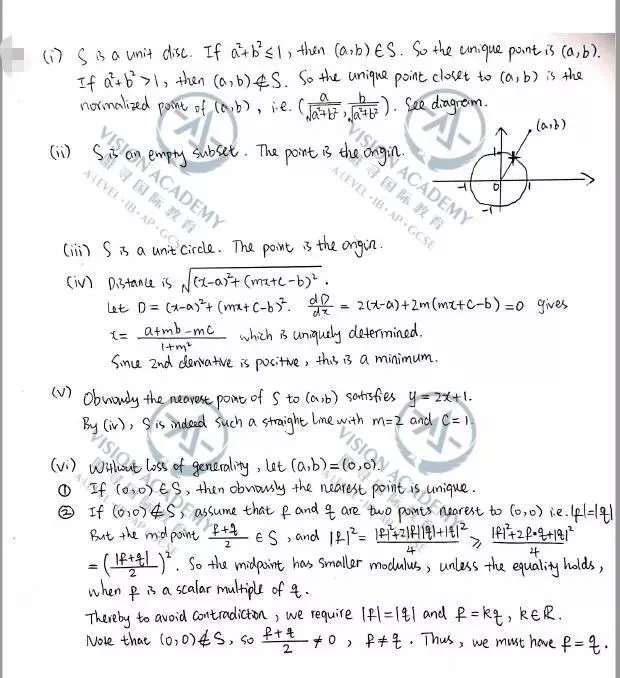 (i) S is a unit disc. If a²+b² ≤ 1, then (a,b) ∈ S. So the unique point is (a,b).
If a²+b² > 1, then (a,b) ∉ S. So the unique point closet to (a,b) is the
normalized point of (a,b), i.e. (a/√(a²+b²), b/√(a²+b²)). See diagram.
(a,b)
(ii) S is an empty subset. The point is the origin.
1
-1 0 1
-1
(iii) S is a unit circle. The point is the origin.
(iv) Distance is √((x-a)²+(mx+c-b)²).
Let D = (x-a)²+(mx+c-b)². dD/dx = 2(x-a)+2m(mx+c-b)=0 gives
x = (a+mb-mc)/(1+m²) which is uniquely determined.
Since 2nd derivative is positive, this is a minimum.
(v) Obviously the nearest point of S to (a,b) satisfies y = 2x+1.
By (iv), S is indeed such a straight line with m=2 and c=1.
(vi) Without loss of generality, let (a,b)=(0,0).
① If (0,0) ∈ S, then obviously the nearest point is unique.
② If (0,0) ∉ S, assume that p and q are two points nearest to (0,0) i.e. |p|=|q|
But the midpoint (p+q)/2 ∈ S, and |p|² = (|p|²+2|p||q|+|q|²)/4 ≥ (|p|²+2p•q+|q|²)/4
= (|p+q|/2)². So the midpoint has smaller modulus, unless the equality holds,
when p is a scalar multiple of q.
Thereby to avoid contradiction, we require |p|=|q| and p=kq, k∈R.
Note that (0,0) ∉ S, so (p+q)/2 ≠ 0, p ≠ q. Thus, we must have p=q.
VISION ACADEMY
翰寻国际教育
A-LEVEL·IB·AP·GCSE
VISION ACADEMY
翰寻国际教育
A-LEVEL·IB·AP·GCSE
VISION ACADEMY
VISION ACADEMY